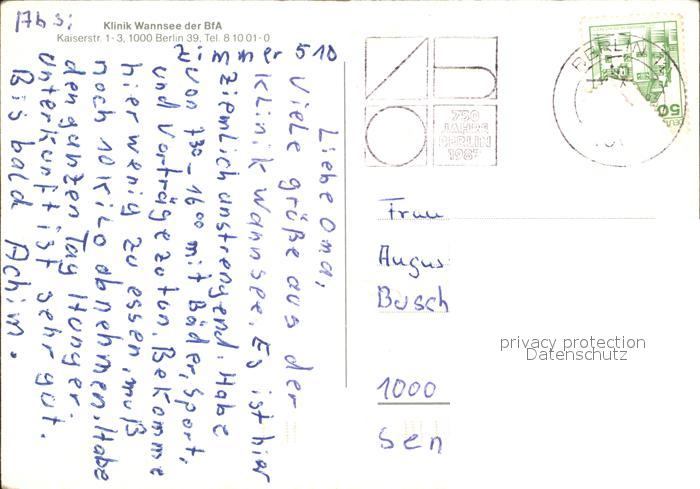 Abs:
Klinik Wannsee der BfA
Kaiserstr. 1-3, 1000 Berlin 39, Tel. 8 10 01-0
Zimmer 510
Liebe Oma,
Viele grüße aus der
Klinik Wannsee. Es ist hier
ziemlich anstrengend. Habe
von 7³⁰-16⁰⁰ mit Bäder, Sport,
und Vorträge zu tun. Bekomme
hier wenig zu essen, muß
noch 10 Kilo abnehmen. Habe
den ganzen Tag Hunger.
Unterkunft ist sehr gut.
Bis bald Achim.
750
JAHRE
BERLIN
1987
BERLIN
50
Frau
Augus
Busch
1000
sen
privacy protection
Datenschutz